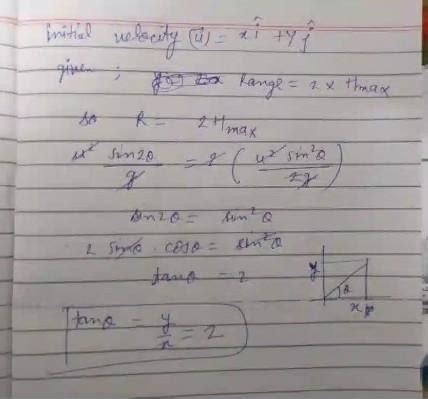 Initial velocity (u⃗) = xî + yĵ
given ; Range = 2 x Hmax
so R = 2Hmax
u² sin2θ / g = 2 ( u² sin²θ / 2g )
sin2θ = sin²θ
2 sinθ . cosθ = sin²θ
tanθ = 2
y
θ
x
tanθ = y/x = 2